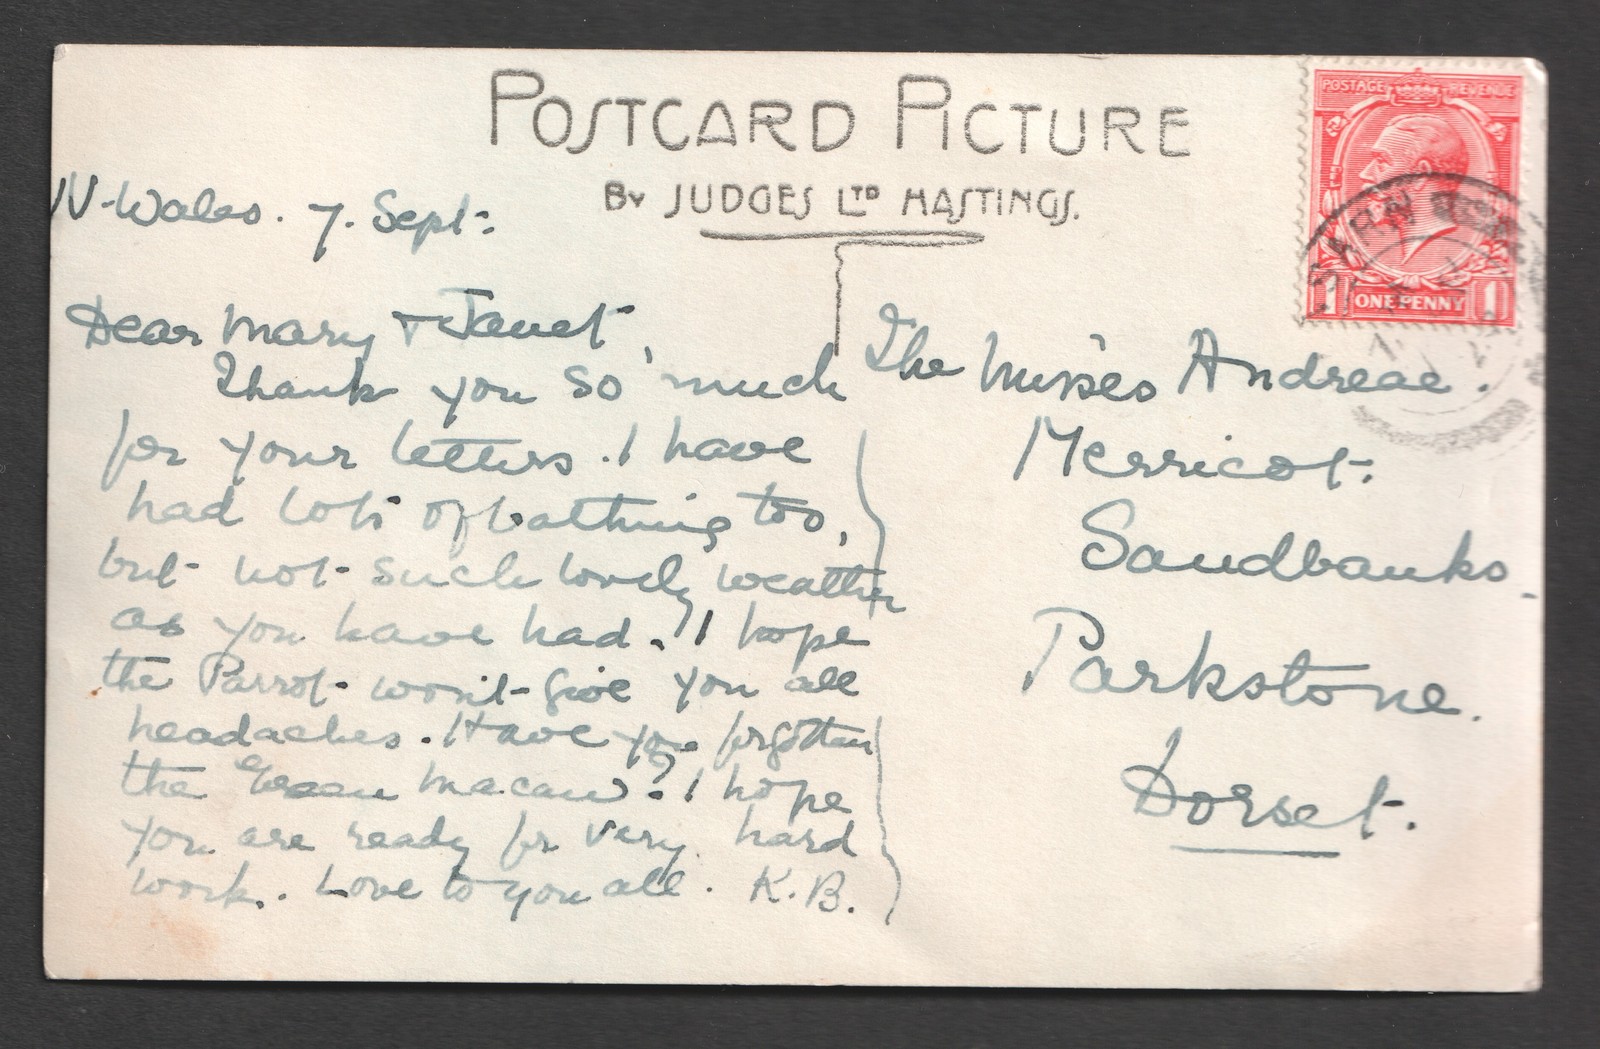 POSTCARD PICTURE
BY JUDGES LTD HASTINGS.
POSTAGE REVENUE
1 ONE PENNY 1
N. Wales. 7. Sept.
Dear Mary & Janet,
Thank you so much
for your letters. I have
had lots of bathing too,
but not such lovely weather
as you have had. I hope
the Parrot won't give you all
headaches. Have you forgotten
the Green Macaw? I hope
you are ready for very hard
work. Love to you all. K.B.
The Misses Andreae.
Merricot.
Sandbanks.
Parkstone.
Dorset.